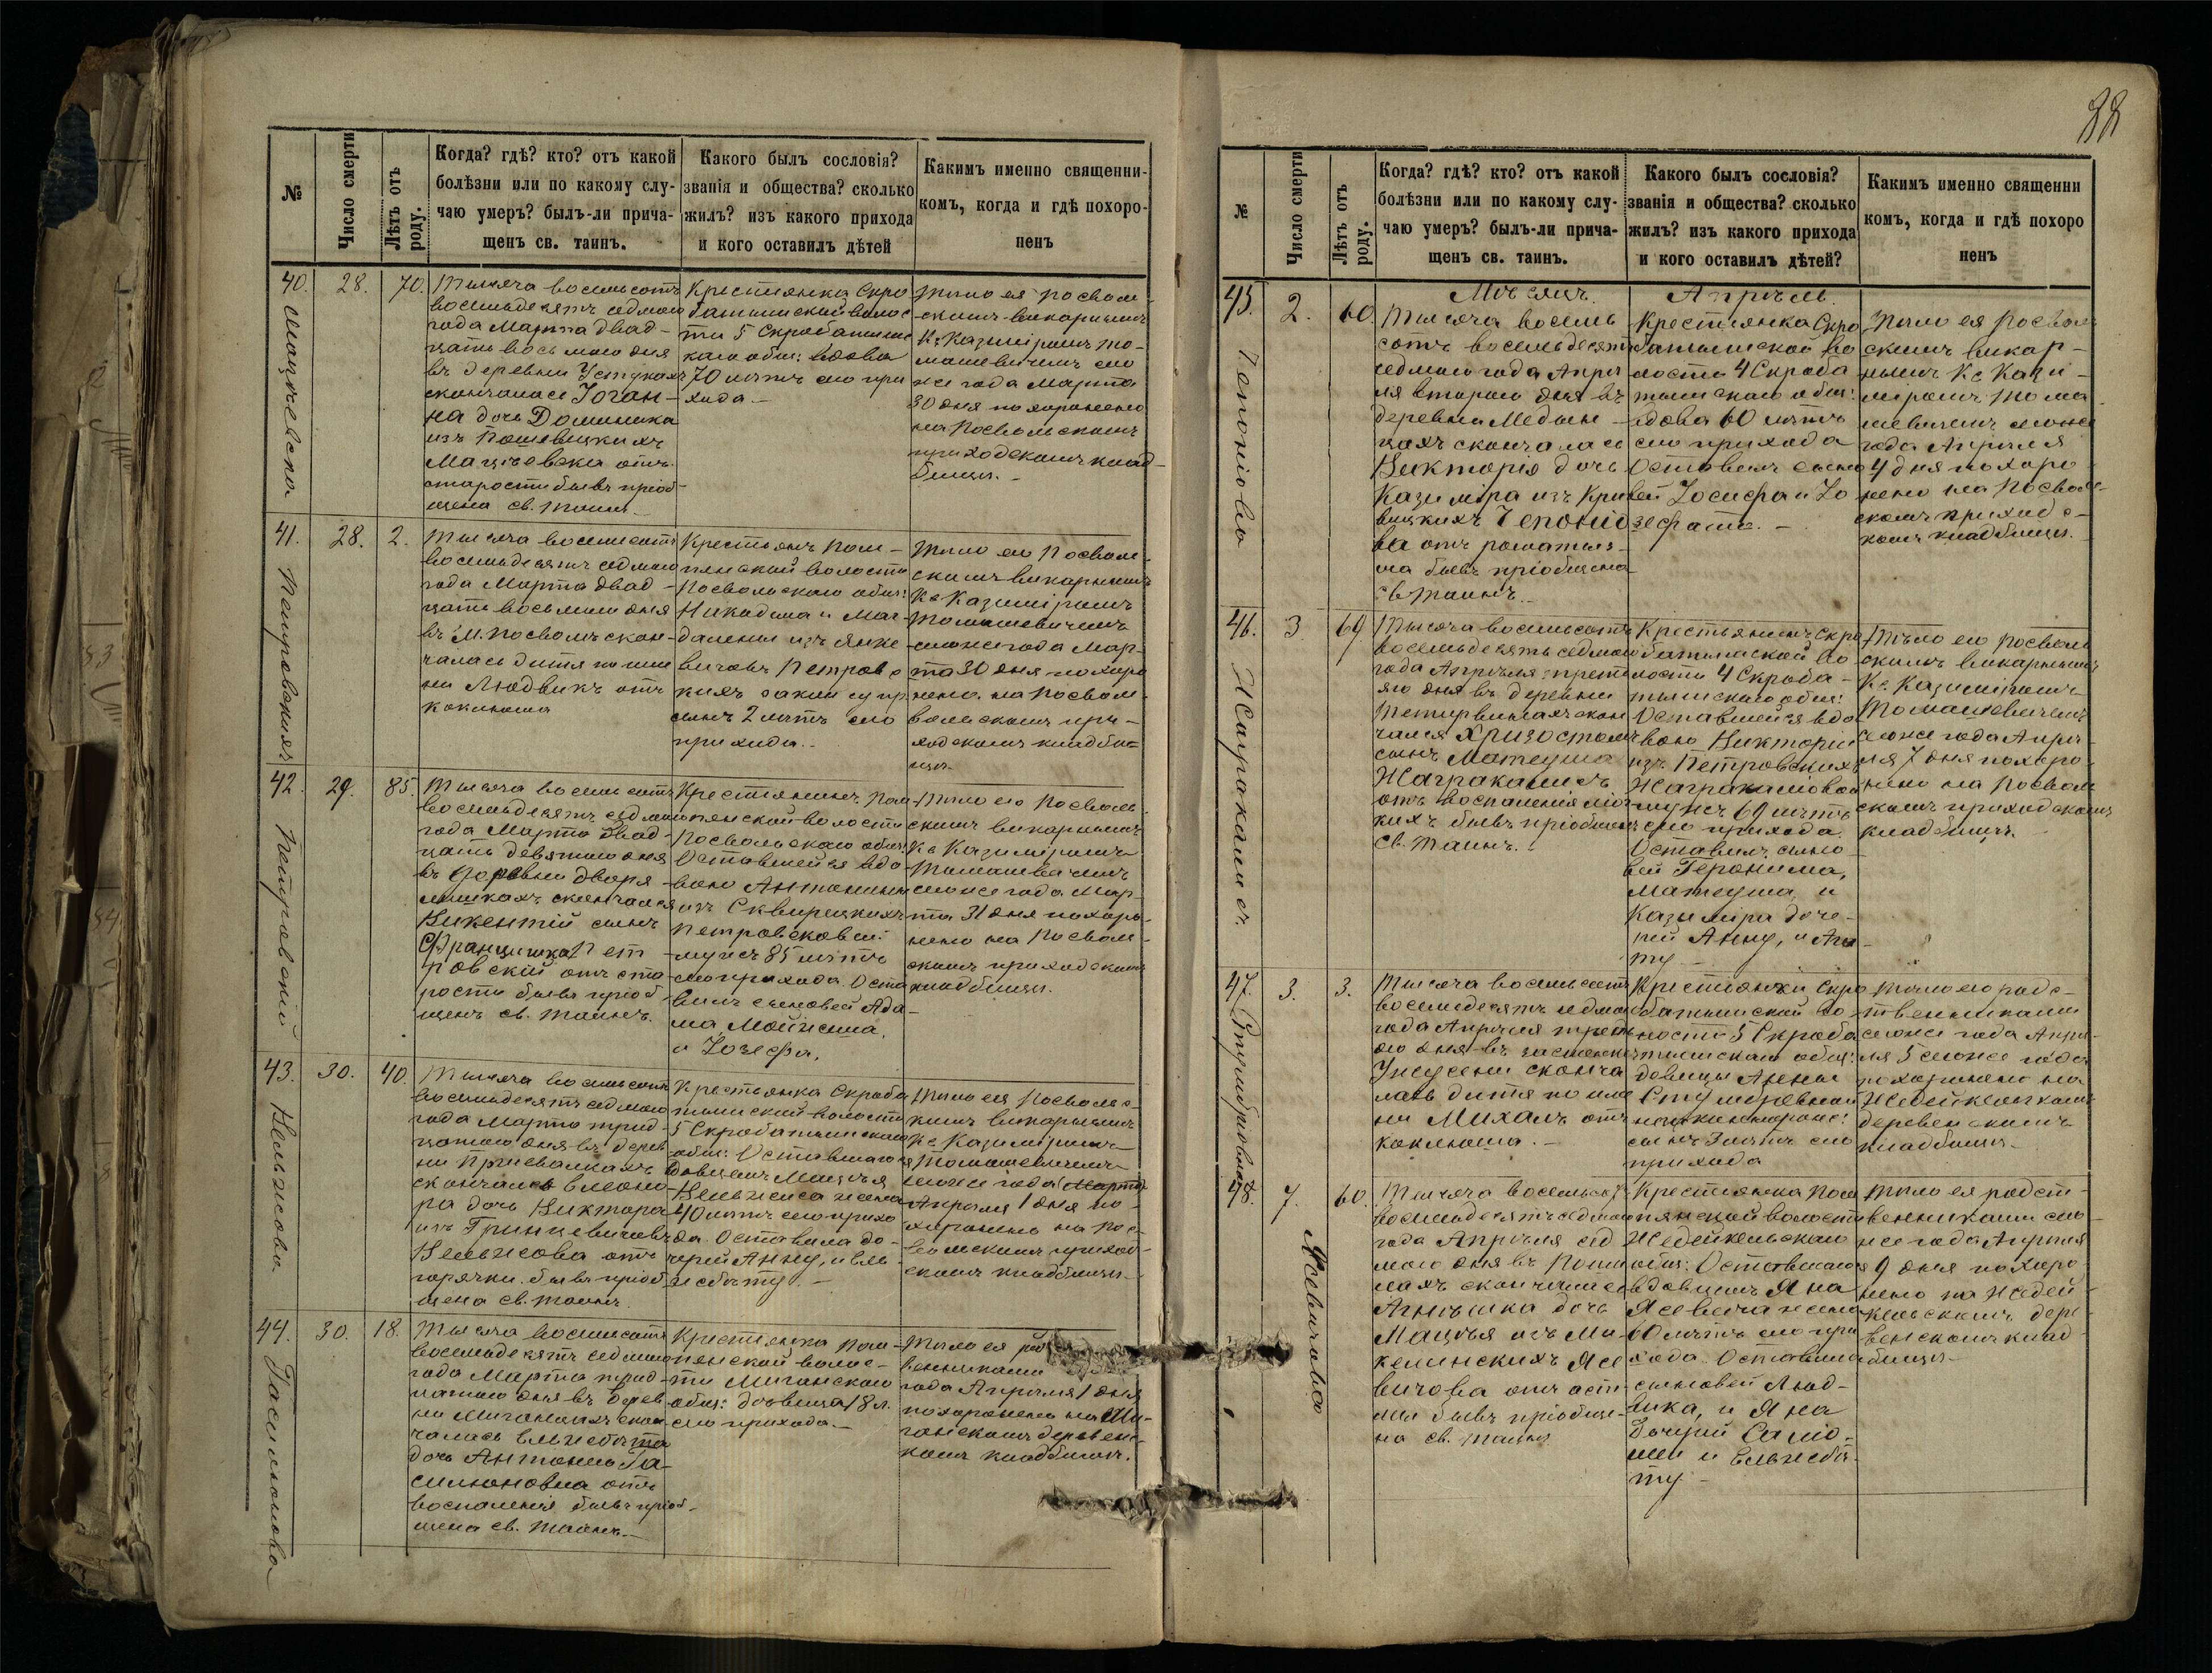 88
№
Число смерти
Лѣтъ отъ роду.
Когда? гдѣ? кто? отъ какой
болѣзни или по какому слу-
чаю умеръ? былъ-ли прича-
щенъ св. таинъ.
Какого былъ сословія?
званія и общества? сколько
жилъ? изъ какого прихода
и кого оставилъ дѣтей
Какимъ именно священни-
комъ, когда и гдѣ похоро-
ненъ
40.
28.
70.
Тысяча восемьсотъ
восемьдесятъ седьмого
года Марта двад-
цать восьмого дня
въ деревни
скончалась Іоган-
на дочь Доминика
изъ
Мацѣевска отъ
старости бывъ пріоб-
щена св. таинъ.
Крестьянка Скро
батышской волос
ти 5 Скробатышс
каго общ: вдова
70 лѣтъ сего при
хода.
Тѣло ея Посволь-
скимъ викарнымъ
Кс Казиміромъ То-
машевичемъ сего
же года Марта
30 дня похоронено
на Посвольскомъ
приходскомъ клад-
бищѣ.
41.
28.
2.
Петровскихъ
Тысяча восемьсотъ
восемьдесятъ седьмого
года Марта двад-
цать восьмого дня
въ М. Посволь скон-
чалась дитя по име
ни Людвикъ отъ
коклюша
Крестьянъ Пом-
пянской волости
Посвольскаго общ:
Никодима и Маг-
далены изъ Янке
вичовъ Петровс
кихъ закон супр
сынъ 2 лѣтъ сего
прихода.
Тѣло его Посволь-
скимъ викарнымъ
Кс Казиміромъ
Томашевичемъ
сегоже года Мар-
та 30 дня похоро
нено на Посволь
вольскомъ при-
ходскомъ кладби-
щѣ.
42.
29.
85.
Петровскій
Тысяча восемьсотъ
восемьдесятъ седьмого
года Марта двад-
цать девятого дня
въ деревни Дворя-
нишкахъ скончался
Викентій сынъ
Францишка Пет
ровскій отъ ста-
рости бывъ пріоб
щенъ св. таинъ.
Крестьянинъ Пом
пянской волости
Посвольскаго общ:
Оставшейся вдо-
вою Антонины
изъ Сквирецкихъ
Петровсковой
мужъ 85 лѣтъ
сего прихода. Оста
вилъ сыновей Ада-
ма, Мойжеша,
и Іозефа,
Тѣло его Посволь
скимъ викарнымъ
Кс Казиміромъ
Томашевичемъ
сегоже года Мар-
та 31 дня похоро-
нено на Посволь-
скомъ приходскомъ
кладбищѣ.
43.
30.
40.
Вельжисова
Тысяча восемьсотъ
восемьдесятъ седьмого
года Марта трид-
цатого дня въ дерев
ни
скончалась Елеоно-
ра дочь Виктора
изъ Гринцевичовъ
Вельжисова отъ
горячки бывъ пріоб
щена св. таинъ.
Крестьянка Скроба
тышской волости
5 Скробатышскаго
общ: Оставшагося
вдовцемъ Мацѣя
Вельжиса жена
40 лѣтъ сего прихо
да. Оставила до-
черей Анну, и Ель
жебѣту.
Тѣло ея Посвольс-
кимъ викарнымъ
Кс Казиміромъ
Томашевичемъ
сегоже года Марта
Апрѣля 1 дня по-
хоронено на Пос-
вольскомъ приход-
скомъ кладбищѣ.
44.
30.
18.
Тысяча восемьсотъ
восемьдесятъ седьмого
года Марта трид-
цатого дня въ дерев
ни
чалась Ельжебѣта
дочь Антонія Га-
силюновна отъ
воспаленія бывъ пріоб-
щена св. таинъ.
Крестьянка Пом-
пянской волос-
ти
общ: дѣвица 18 л.
сего прихода.
Тѣло ея
венниками
года Апрѣля 1 дня
похоронено на
деревенс-
комъ кладбищѣ.
№
Число смерти
Лѣтъ отъ роду.
Когда? гдѣ? кто? отъ какой
болѣзни или по какому слу-
чаю умеръ? былъ-ли прича-
щенъ св. таинъ.
Какого былъ сословія?
званія и общества? сколько
жилъ? изъ какого прихода
и кого оставилъ дѣтей?
Какимъ именно священни
комъ, когда и гдѣ похоро
ненъ
Мѣсяцъ. Апрѣль.
45.
2.
60.
Чепоніова
Тысяча восемь
сотъ восемьдесятъ
седьмого года Апрѣ
ля второго дня въ
деревни Медын-
цахъ скончалась
Викторія дочь
Казиміра изъ Кри
вицкихъ Чепоніо
ва отъ
ма бывъ пріобщена
св таинъ.
Крестьянка Скро
батышской во
лости 4 Скроба
тышскаго общ:
вдова 60 лѣтъ
сего прихода
Оставила сыно
вей Іосифа и Іо
зефата.
Тѣло ея Посволь
скимъ викар-
нымъ Кс Кази-
міромъ Тома
шевичемъ сегоже
года Апрѣля
4 дня похоро
нено на Посволь-
скомъ приходс-
комъ кладбищѣ.
46.
3
69
Жагракалисъ
Тысяча восемьсотъ
восемьдесятъ седьмого
года Апрѣля треть
яго дня въ деревни
скон
чался Хризостомъ
сынъ Матеуша
Жагракалисъ
отъ воспаленія лег
кихъ бывъ пріобщенъ
св. таинъ.
Крестьянинъ Скро
батышской во
лости 4 Скроба-
тышскаго общ:
Оставшейся вдо
вою Викторіи
изъ Петровскихъ
Жагракалисовой
мужъ 69 лѣтъ
сего прихода.
Оставилъ сыно-
вей Геронима,
Матеуша, и
Казиміра доче-
рей Анну, и Ага-
ту
Тѣло его Посволь
скимъ викарнымъ
Кс. Казиміромъ
Томашевичемъ
сегоже года Апрѣ-
ля 7 дня похоро-
нено на Посволь
скомъ приходскомъ
кладбищѣ.
47.
3.
3.
Тысяча восемьсотъ
восемьдесятъ седьмого
года Апрѣля треть
яго дня въ застѣнкѣ
сконча
лась дитя по име
ни Михалъ отъ
коклюша.
Крестьянки Скро
батышской во-
лости 5 Скроба
тышскаго общ:
дѣвицы Анны
сынъ 3 лѣтъ сего
прихода
Тѣло его родс-
твенниками
сегоже года Апрѣ-
ля 5 сегоже года
похоронено на
деревенскомъ
кладбищѣ.
48.
7.
60.
Ясевичова
Тысяча восемьсотъ
восемьдесятъ седьмого
года Апрѣля сед
мого дня въ
лахъ скончалась
Агнѣшка дочь
Мацѣя изъ Ми-
келинскихъ Ясе
вичова отъ
бывъ пріобще-
на св. таинъ
Крестьянка Пом
пянской волости
общ: Оставшагося
вдовцемъ Яна
Ясевича жена
60 лѣтъ сего при
хода. Оставила
сыновей Люд-
вика, и Яна
дочерей Сало-
мею и Ельжебѣ-
ту
Тѣло ея родст-
венниками сего
же года Апрѣля
9 дня похоро
нено на Жедей-
кельскомъ дере-
венскомъ клад-
бищѣ